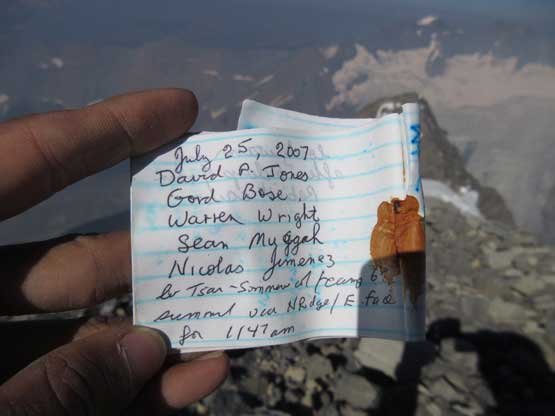 July 25, 2007
David P. Jones
Gord Bose
Warren Wright
Sean Muggah
Nicolas Jimenez
Tsar - Sommer
summit via N Ridge / E. face
for 11:47 am